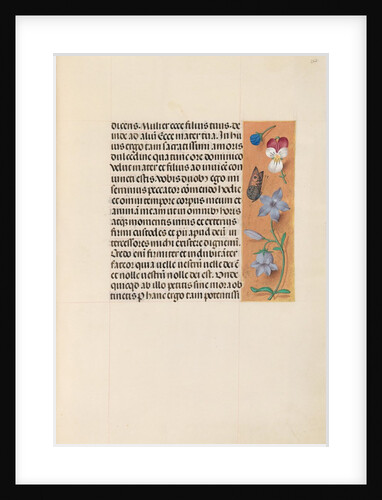 dicens. Mulier ecce filius tuus. de
inde ad alium Ecce mater tua. In hu
ius ergo tam sacratissimi amoris
dulcedine qua tunc ore dominico
velut mater et filius ad invicem con
iuncti estis. vobis duob; ego mi
serrimus peccator comendo hodie
et omni tempore corpus meum et
animam meam ut in omnib; horis
atq; momentis intus et exterius
firmi custodes et pii apud deum in
tercessores michi existere dignemi.
Credo enim firmiter et indubitater
fateor quia velle vestrum velle dei e
et nolle vestrum nolle dei est. Unde
quicqd ab illo petitis sine mora ob
tinetis P hanc ergo tam potentissi